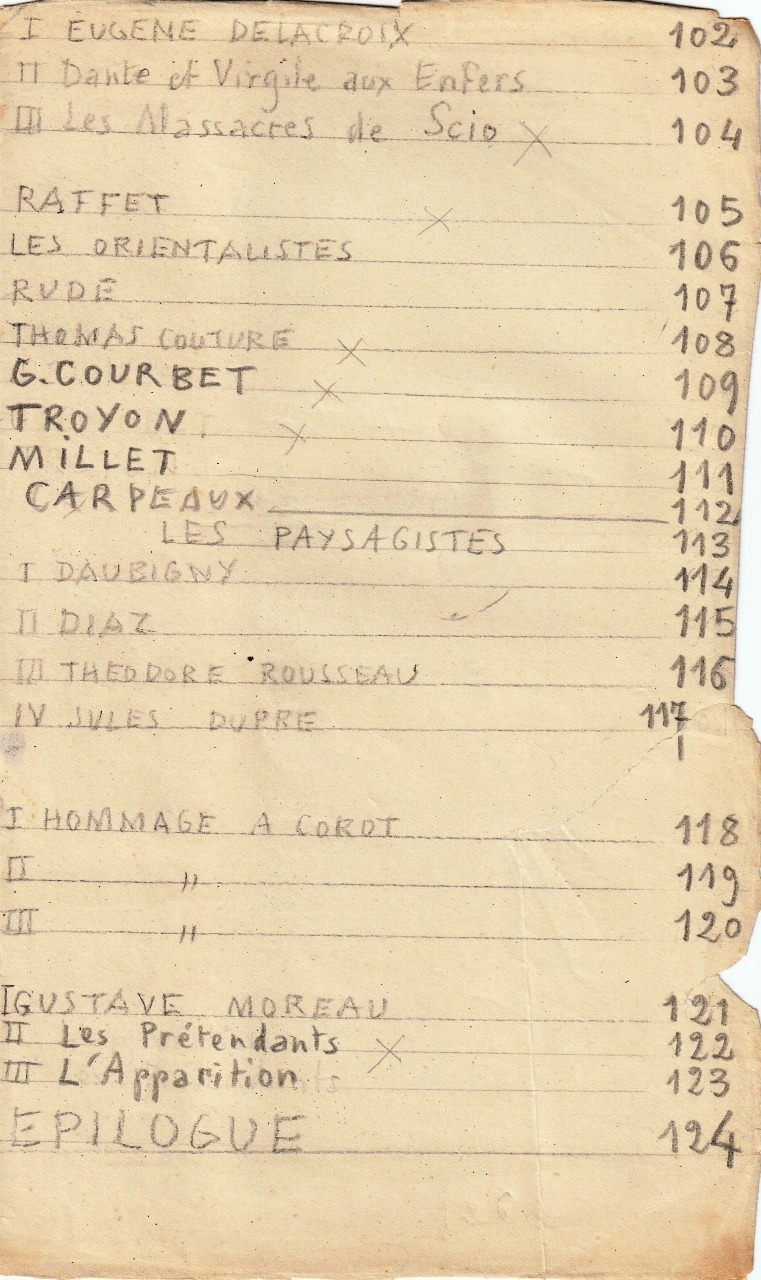 I EUGENE DELACROIX 102
II Dante et Virgile aux Enfers 103
III Les Massacres de Scio X 104
RAFFET X 105
LES ORIENTALISTES 106
RUDE 107
THOMAS COUTURE X 108
G. COURBET X 109
TROYON X 110
MILLET 111
CARPEAUX 112
LES PAYSAGISTES 113
I DAUBIGNY 114
II DIAZ 115
III THEODORE ROUSSEAU 116
IV JULES DUPRE 117
I HOMMAGE A COROT 118
II " 119
III " 120
I GUSTAVE MOREAU 121
II Les Prétendants X 122
III L'Apparition 123
EPILOGUE 124